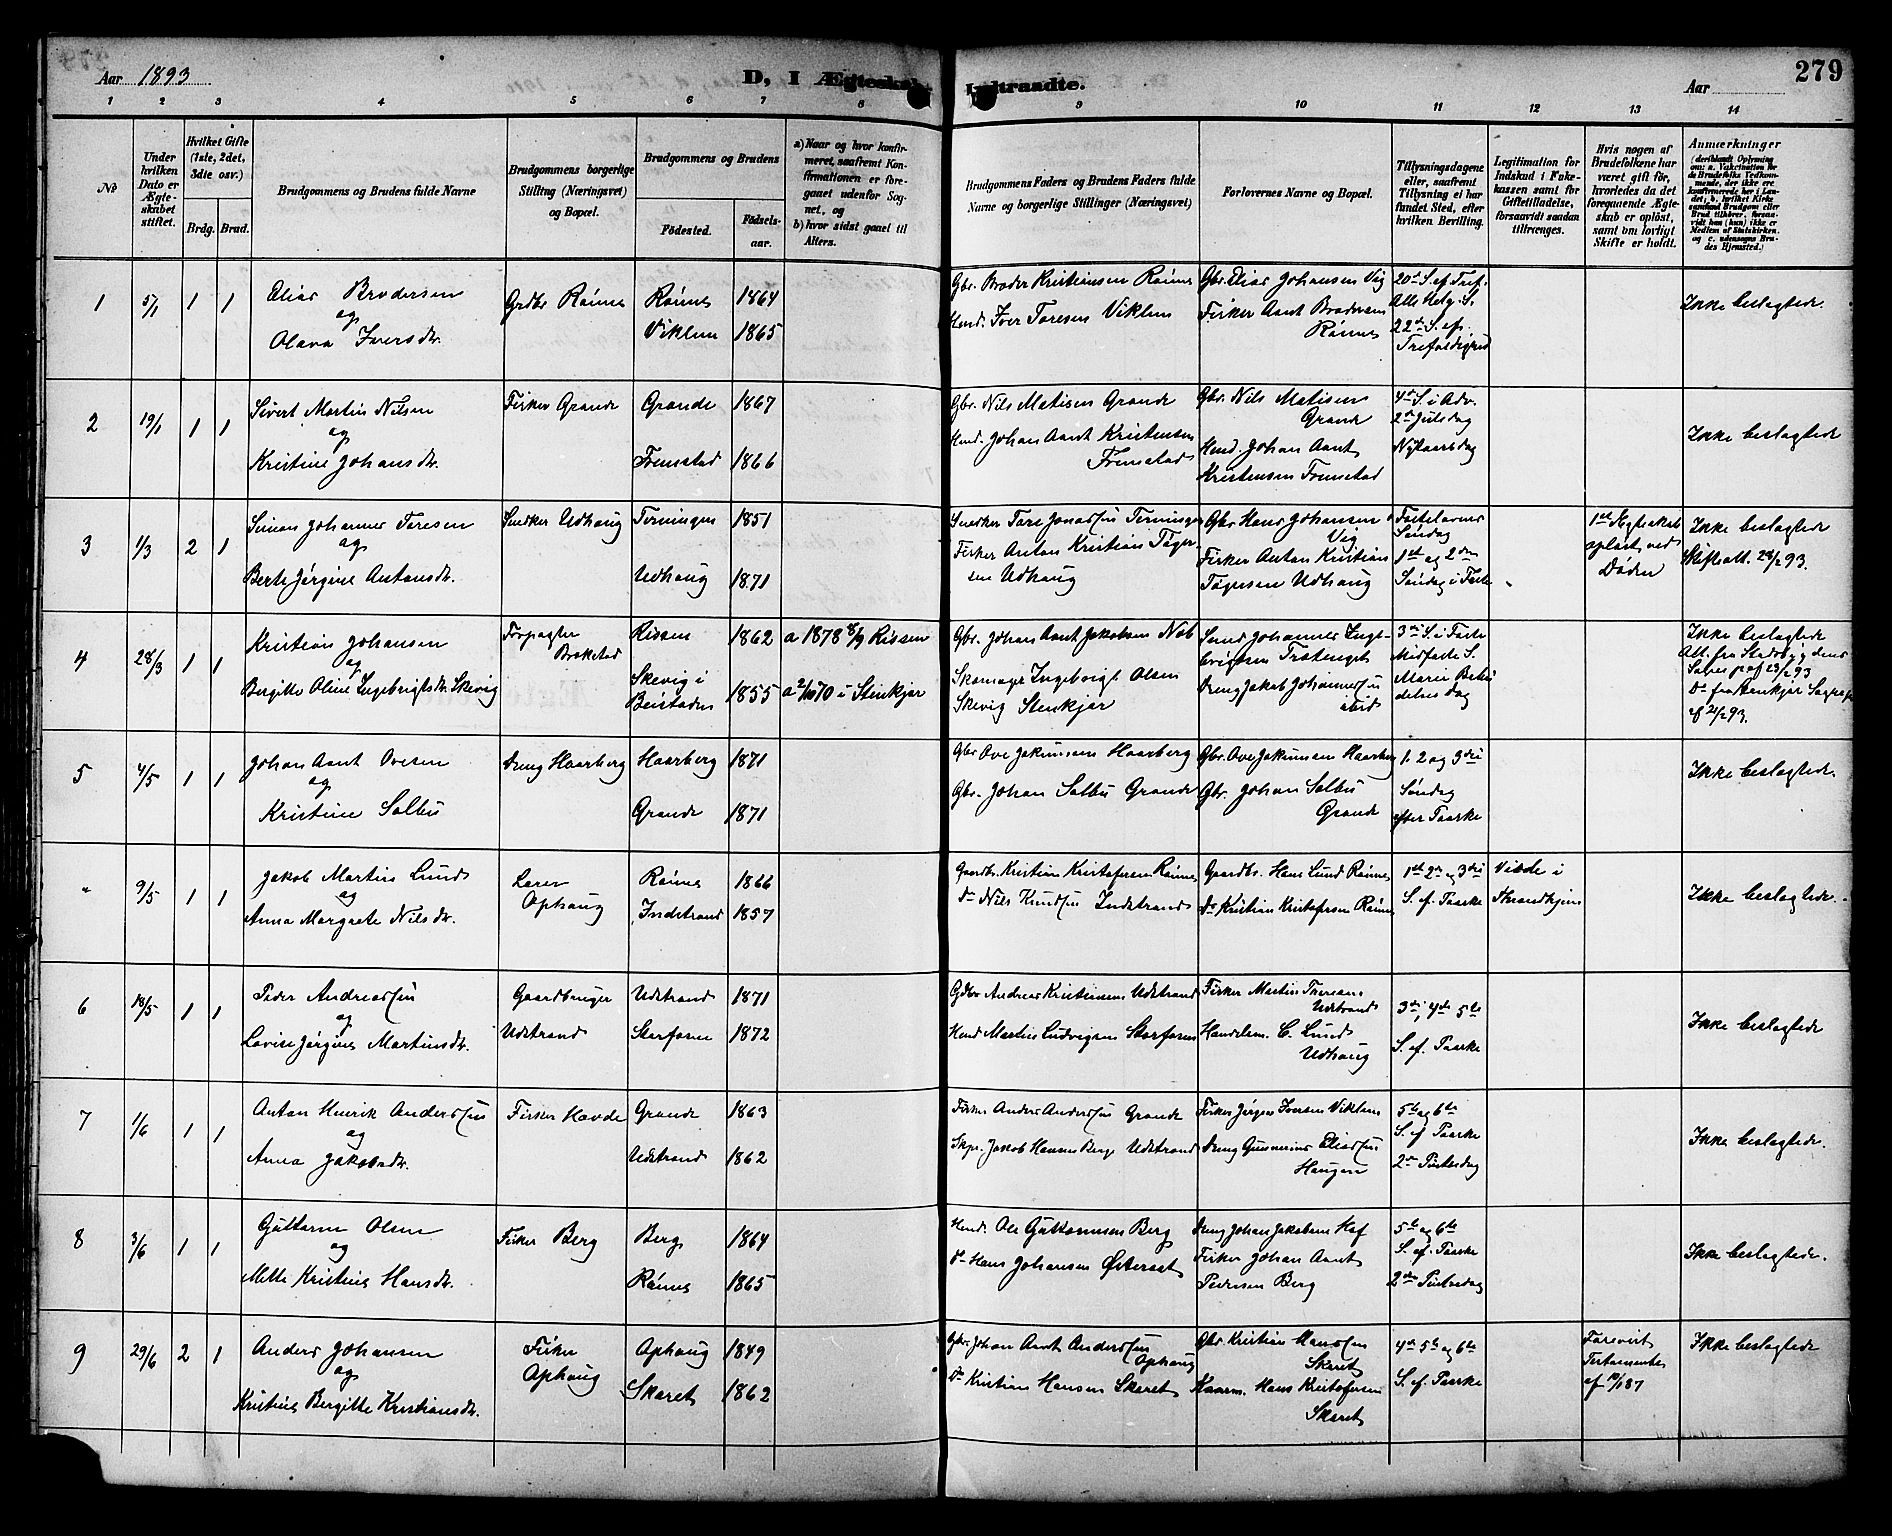 Aar 1893
D, I Ægteskab Indtraadte.
Aar
279
1 2 3 4 5 6 7 8 9 10 11 12 13 14
No
Under hvilken Dato er Ægteskabet stiftet.
Hvilket Gifte (1ste, 2det, 3die osv.)
Brdg. Brud.
Brudgommens og Brudens fulde Navne
Brudgommens borgerlige Stilling (Næringsvei) og Bopæl.
Brudgommens og Brudens
Födested.
Födselsaar.
a) Naar og hvor konfirmeret, saafremt Konfirmationen er foregaaet udenfor Sognet, og
b) hvor sidst gaaet til Alters.
Brudgommens Faders og Brudens Faders fulde Navne og borgerlige Stillinger (Næringsvei)
Forlovernes Navne og Bopæl.
Tillysningsdagene eller, saafremt Tillysning ei har fundet Sted, efter hvilken Bevilling.
Legitimation for Indskud i Enkekassen samt for Giftetilladelse, forsaavidt saadan tiltrænges.
Hvis nogen af Brudefolkene har været gift før, hvorledes da det foregaaende Ægteskab er oplöst, samt om lovligt Skifte er holdt.
Anmærkninger
1 5/1 1 1
Elias Brodersen
og
Olava Iversdtr.
Grdbr Rønne
Rønne 1864
Viklem 1865
Gbr. Broder Kristiansen Rønne
Husmd. Iver Toresen Viklem
Gbr. Elias Johansen Vig
Fisker Arnt Brodersen
Rønne
20de S. ef. Tref.
Alle Helg. S.
22de S. ef.
Trefoldighed
Ikke beslægtede.
2 19/1 1 1
Sivert Martin Nilsen
og
Kristine Johansdtr.
Fisker Grande
Grande 1867
Fremstad 1866
Gbr. Nils Matisen Grande
Husmd. Johan Arnt Kristensen
Fremstad
Gbr. Nils Matisen
Grande
Husmd. Johan Arnt
Kristensen Fremstad
4de S. i Adv.
2den Juledag
Nytaarsdag
Ikke beslægtede
3 1/3 2 1
Simon Johannes Toresen
og
Berte Jørgine Antonsdtr.
Snedker Udhaug
Terningen 1851
Udhaug 1871
Snedker Tore Jonassen Terningen
Fisker Anton Kristian Tøgersen Udhaug
Gbr. Hans Johansen
Vig
Fisker Anton Kristian
Tøgersen Udhaug
Fastelavns
Søndag
1ste og 2den
Søndag i Faste
1ste Ægteskab
opløst ved
Døden
Ikke beslægtede
Skifteatt. 28/2 93.
4 28/3 1 1
Kristian Johansen
og
Bergitte Oline Ingebrigtsdtr. Skevig
Forpagter
Brekstad
Rissen 1862
Skevig i
Beistaden 1855
a 1878 8/9 Rissen
a 2/10 70 i Stenkjær
Gbr. Johan Arnt Jakobsen
Skomager Ingebrigt Olsen
Skevig Stenkjær
Dreng Jakob Johannessen
ibid
3die S. i Faste
Midfaste S.
Marie Bebudelses Dag
Ikke beslægtede
Att. fra Stadsbygdens
Sognepr. af 23/2 93
Do fra Stenkjær Sognepr.
af 21/2 93.
5 4/5 1 1
Johan Arnt Ovesen
og
Kristine Solbu
Dreng Haarberg
Haarberg 1871
Grande 1871
Gbr Ove Jakumsen Haarberg
Gbr. Johan Solbu Grande
Gbr. Ove Jakumsen Haarberg
Gbr. Johan Solbu
Grande
1. 2 og 3die
Søndag
efter Paaske
Ikke beslægtede.
" 9/5 1 1
Jakob Martin Lund
og
Anna Margrete Nilsdtr.
Lærer
Ophaug
Rønne 1866
Indstrand 1857
Gaardbr. Kristian Kristofersen Rønne
Do Nils Knudsen Indstrand
Gaardbr. Hans Lund Rønne
Do Kristian Kristofersen Rønne
1ste 2den og 3die
S. ef. Paaske
Viede i
Throndhjem
Ikke beslægtede.
6 18/5 1 1
Peder Andreassen
og
Lovise Jørgine Martinsdtr.
Gaardbruger
Udstrand
Udstrand 1871
Storfosen 1872
Gdbr Andreas Kristiansen Udstrand
Husmd Martin Ludvigsen Storfosen
Fisker Martin Thoresen
Udstrand
Handelsm. C. Lund
Udhaug
3die, 4de 5te
S. ef. Paaske
Ikke beslægtede
7 1/6 1 1
Anton Henrik Anderssen
og
Anna Jakobsdtr.
Fisker Hovde
Grande 1863
Udstrand 1862
Fisker Anders Anderssen Grande
Skpr. Jakob Hansen Berg Udstrand
Fisker Jørgen Iversen Viklem
Dreng Gunnerius Eliassen
Haugen
5te og 6te
S. ef Paaske
2den Pintsedag
Ikke beslægtede.
8 3/6 1 1
Guttorm Olsen
og
Mette Kristine Hansdtr.
Fisker Berg
Berg 1864
Rønne 1865
Husmd. Ole Guttormsen Berg
Do Hans Johansen Østeraat
Dreng Johan Jakobsen Hof
Fisker Johan Arnt
Pedersen Berg
5te og 6te
S. ef. Paaske
2den Pintsedag
Ikke beslægtede.
9 29/6 2 1
Anders Johansen
og
Kristine Bergitte Kristiansdtr.
Fisker
Ophaug
Ophaug 1849
Skeret 1862
Gbr. Johan Arnt Anderssen
Ophaug
Do Kristian Hansen Skeret
Gbr Kristian Hanssen
Skeret
Hans Kristofersen
Skeret
4de 5te og 6te
S. ef. Paaske
Testamente
Ikke beslægtede